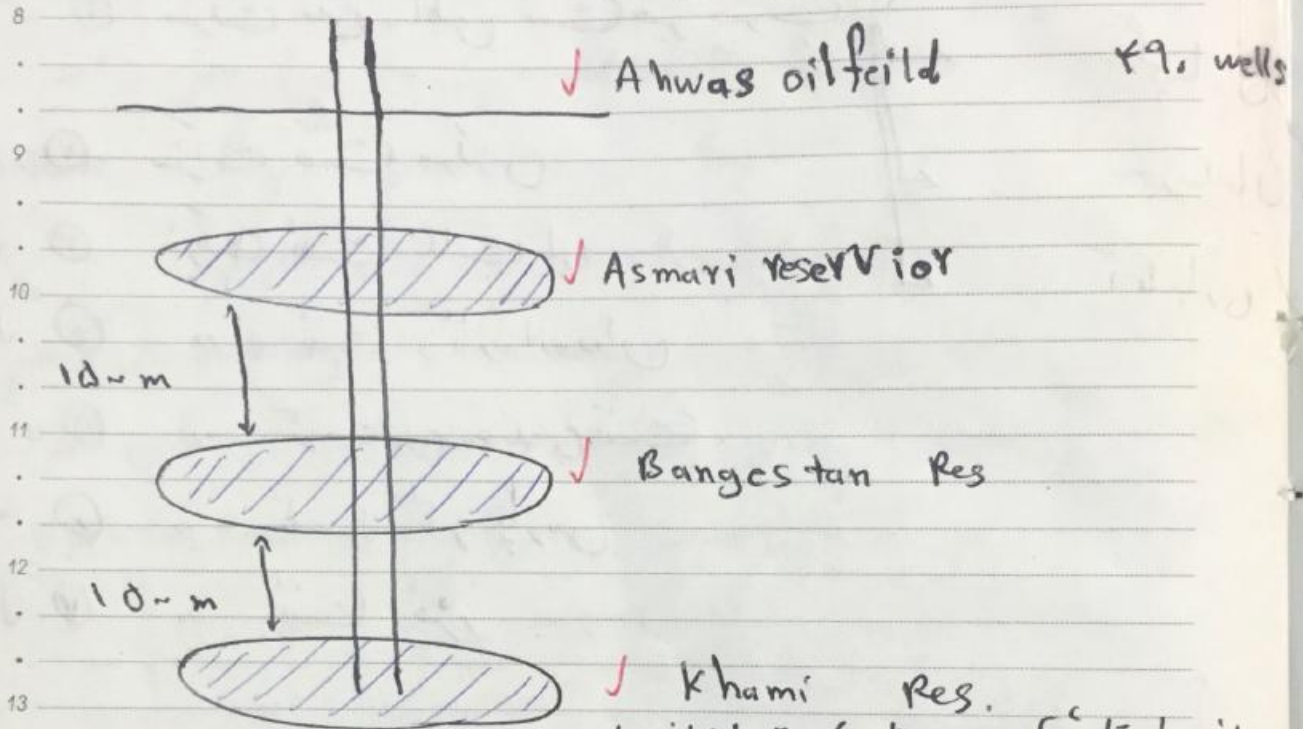 8
Ahwas oilfeild ۴۹۰ wells
9
Asmari reservior
10
۱۵۰۰ m
11
Bangestan Res
12
۱۵۰۰ m
Khami Res.
13